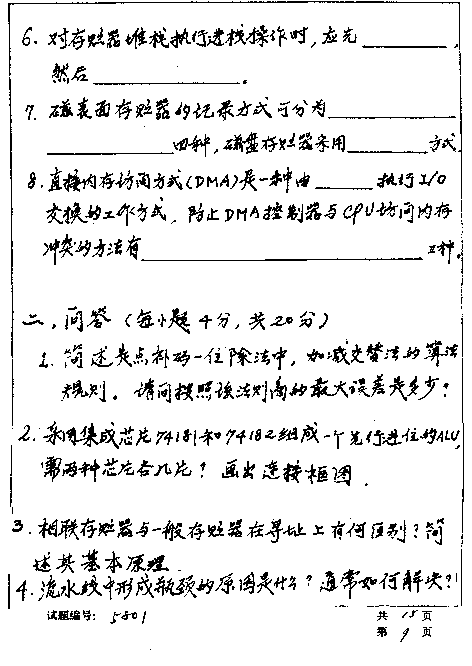 6. 对存贮器堆栈执行进栈操作时,应先________,
然后________。
7. 磁表面存贮器的记录方式可分为________
________四种,磁盘存贮器采用________方式
8. 直接内存访问方式(DMA)是一种由________执行I/O
交换的工作方式,防止DMA控制器与CPU访问内存
冲突的方法有________三种。
二、问答(每小题4分,共20分)
1. 简述定点补码一位除法中,加减交替法的算法
规则。请问按照该法则商的最大误差是多少?
2. 采用集成芯片74181和74182组成一个先行进位的ALU,
需两种芯片各几片?画出连接框图.
3. 相联存贮器与一般存贮器在寻址上有何区别?简
述其基本原理.
4. 流水线中形成瓶颈的原因是什么?通常如何解决?
试题编号: 5801
共 15 页
第 9 页